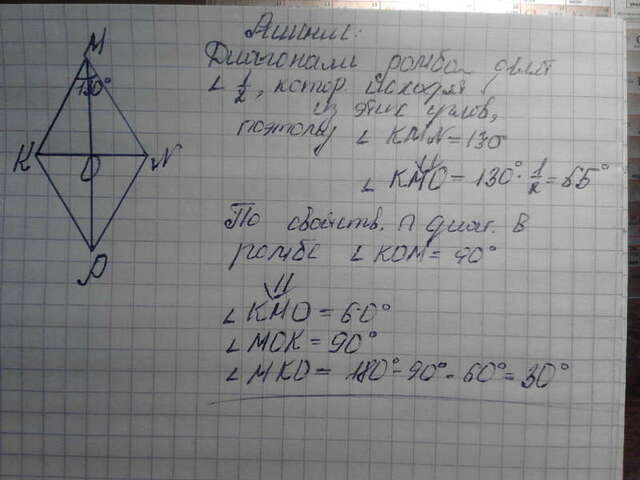 M
130°
K
N
O
P
Диагонали ромба делят
∠ 1/2, котор. исходят
из этих углов,
поэтому ∠ KMN = 130
∠ KMO = 130° · 1/2 = 65°
По свойств. П диаг. В
ромбе ∠ KOM = 90°
∠ KMO = 60°
∠ MOK = 90°
∠ MKO = 180° - 90° - 60° = 30°